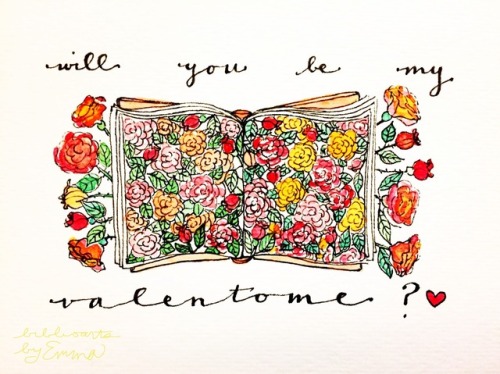 will you be my
valentome?
by Emma